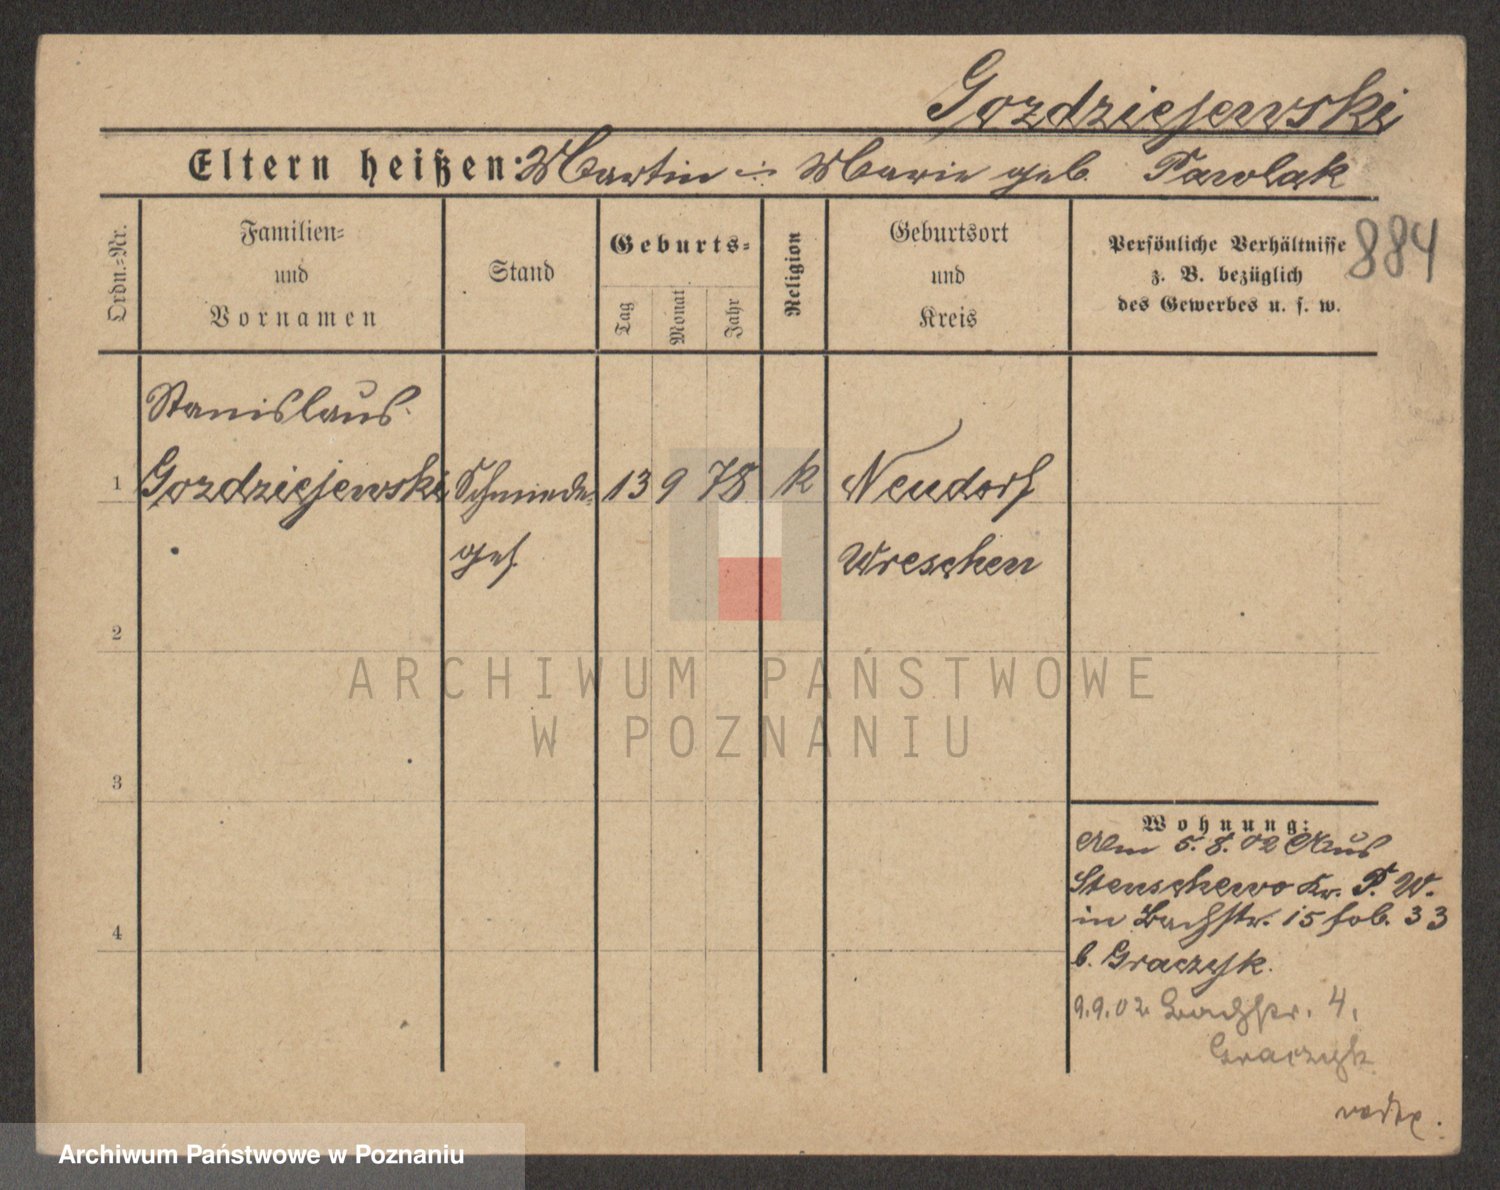 Gozdziejewski
Eltern heißen: Martin u. Marie geb. Pawlak
884
Ordn.=Nr.
Familien=
und
Vornamen
Stand
Geburts=
Tag
Monat
Jahr
Religion
Geburtsort
und
Kreis
Persönliche Verhältnisse
z. B. bezüglich
des Gewerbes u. s. w.
Stanislaus
1 Gozdziejewski Schmiede= 13 9 78 k Neudorf
ges. Wreschen
2
3
4
Wohnung:
Am 5. 8. 02 Aus
Stenschewo Kr. P. W.
in Bachstr. 15 fol. 33
b. Graczyk.
9.9.02 Bachstr. 4.
Graczyk
ARCHIWUM PAŃSTWOWE
W POZNANIU
Archiwum Państwowe w Poznaniu